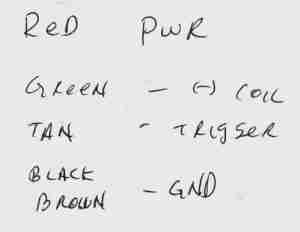 RED PWR
GREEN - (-) COIL
TAN - TRIGGER
BLACK
BROWN - GND